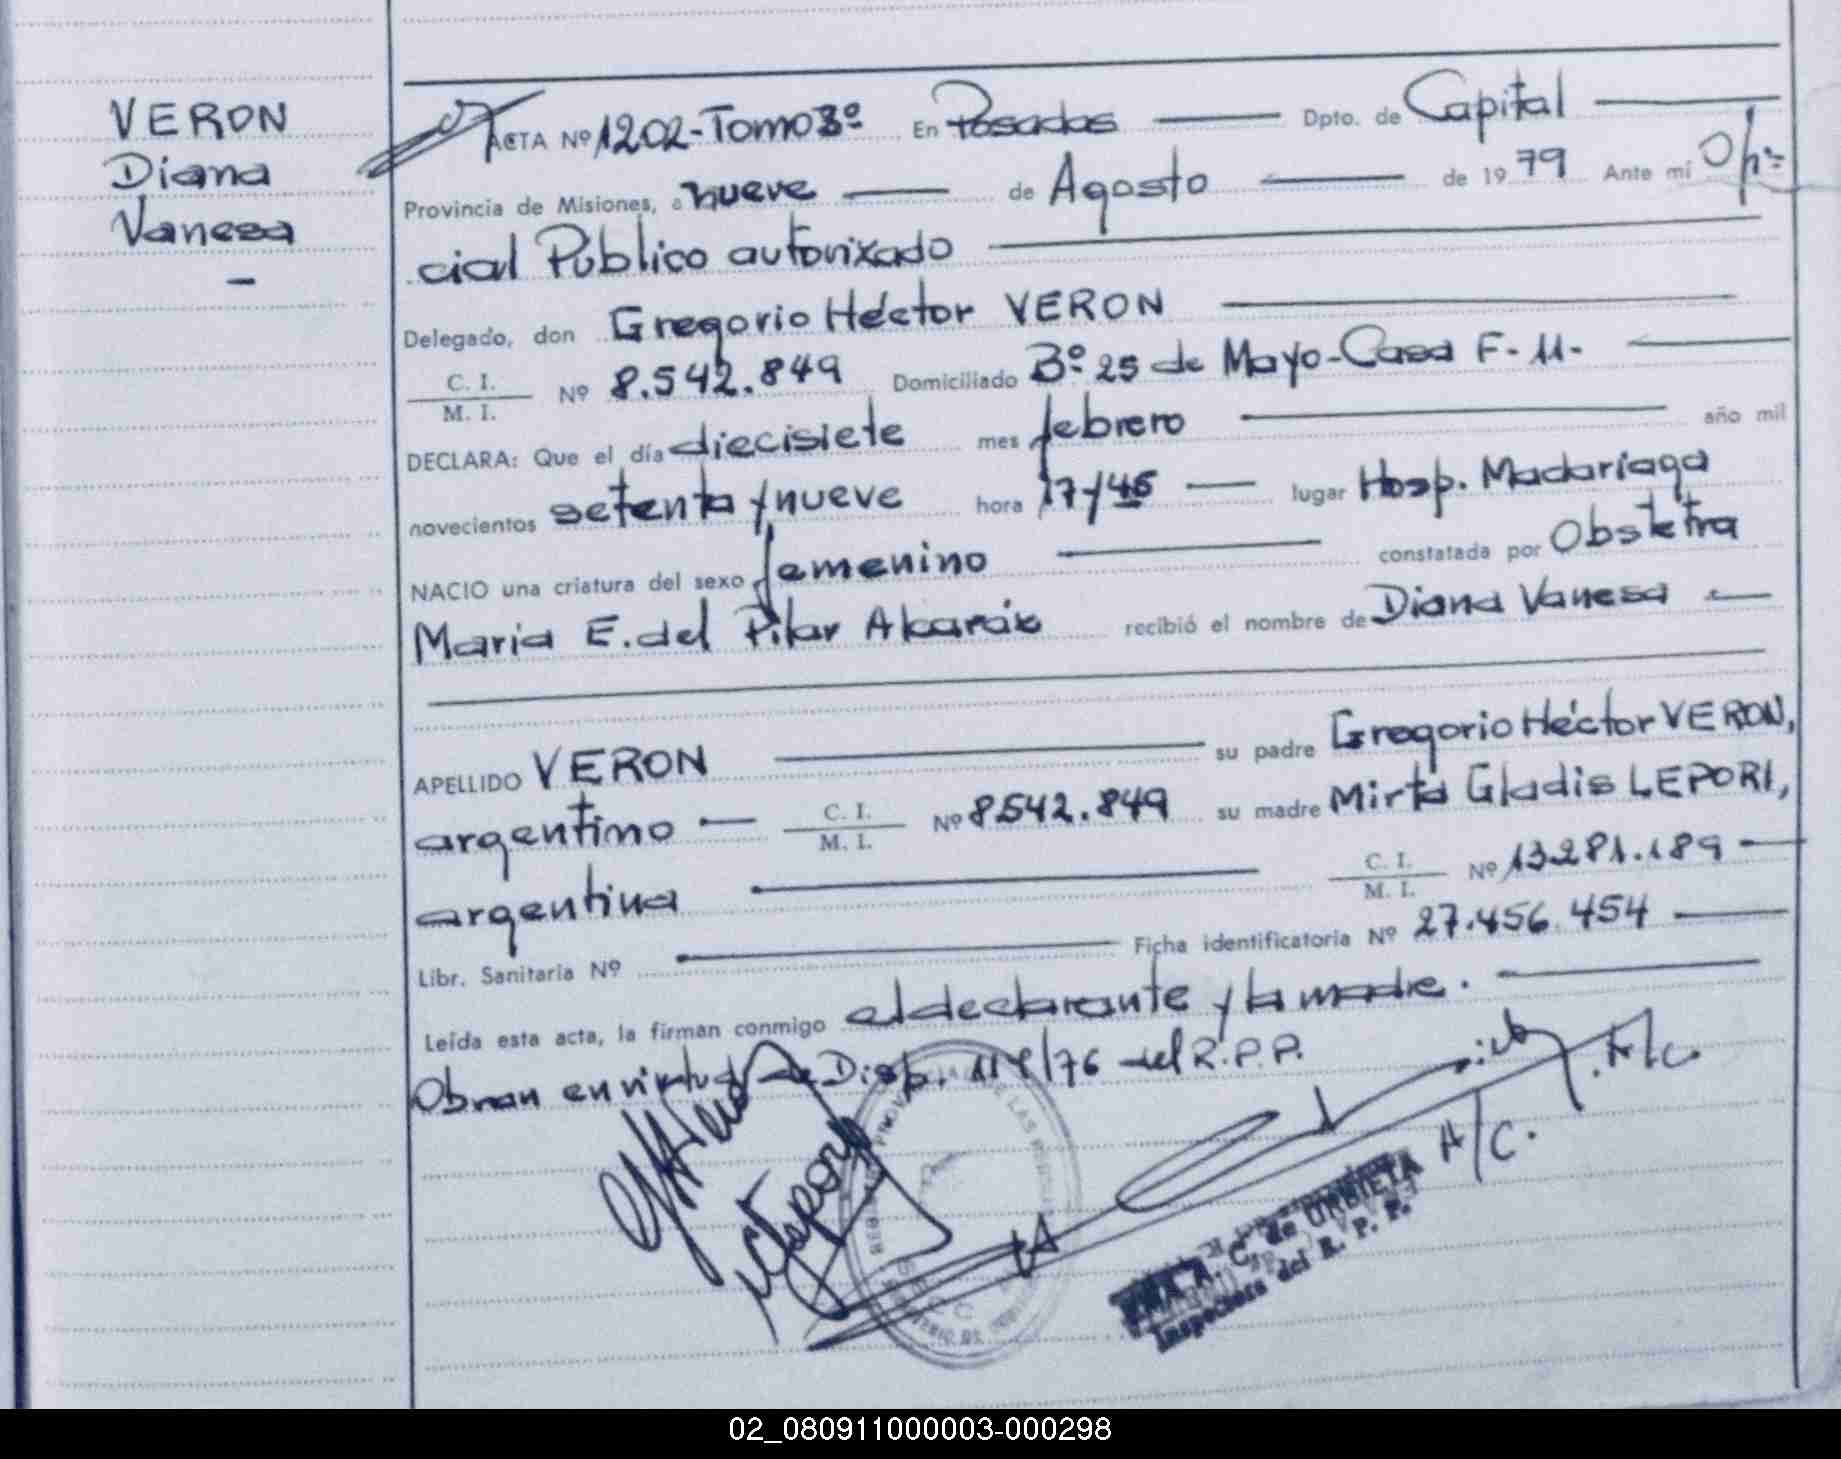 VERON
Diana
Vanesa
ACTA Nº 1202-Tomo 3º En Posadas Dpto. de Capital
Provincia de Misiones, a nueve de Agosto de 1979 Ante mí Ofi=
cial Público autorizado
Delegado, don Gregorio Héctor VERON
C. I.
M. I. Nº 8.542.849 Domiciliado Bº 25 de Mayo-Casa F-11-
DECLARA: Que el día diecisiete mes febrero año mil
novecientos setenta y nueve hora 17/45 lugar Hosp. Madariaga
NACIO una criatura del sexo femenino constatada por Obstetra
Maria E. del Pilar Alcaráz recibió el nombre de Diana Vanesa
APELLIDO VERON su padre Gregorio Héctor VERON,
argentino C. I. M. I. Nº 8542.849 su madre Mirta Gladis LEPORI,
argentina C. I. M. I. Nº 13.281.189
Libr. Sanitaria Nº Ficha identificatoria Nº 27.456.454
Leída esta acta, la firman conmigo el declarante y la madre.
Obran en virtud de Disp. /76 del R.P.P.
A/C.
A/C.
C. de URBIETA
Inspectora del R. P. P.
02_080911000003-000298